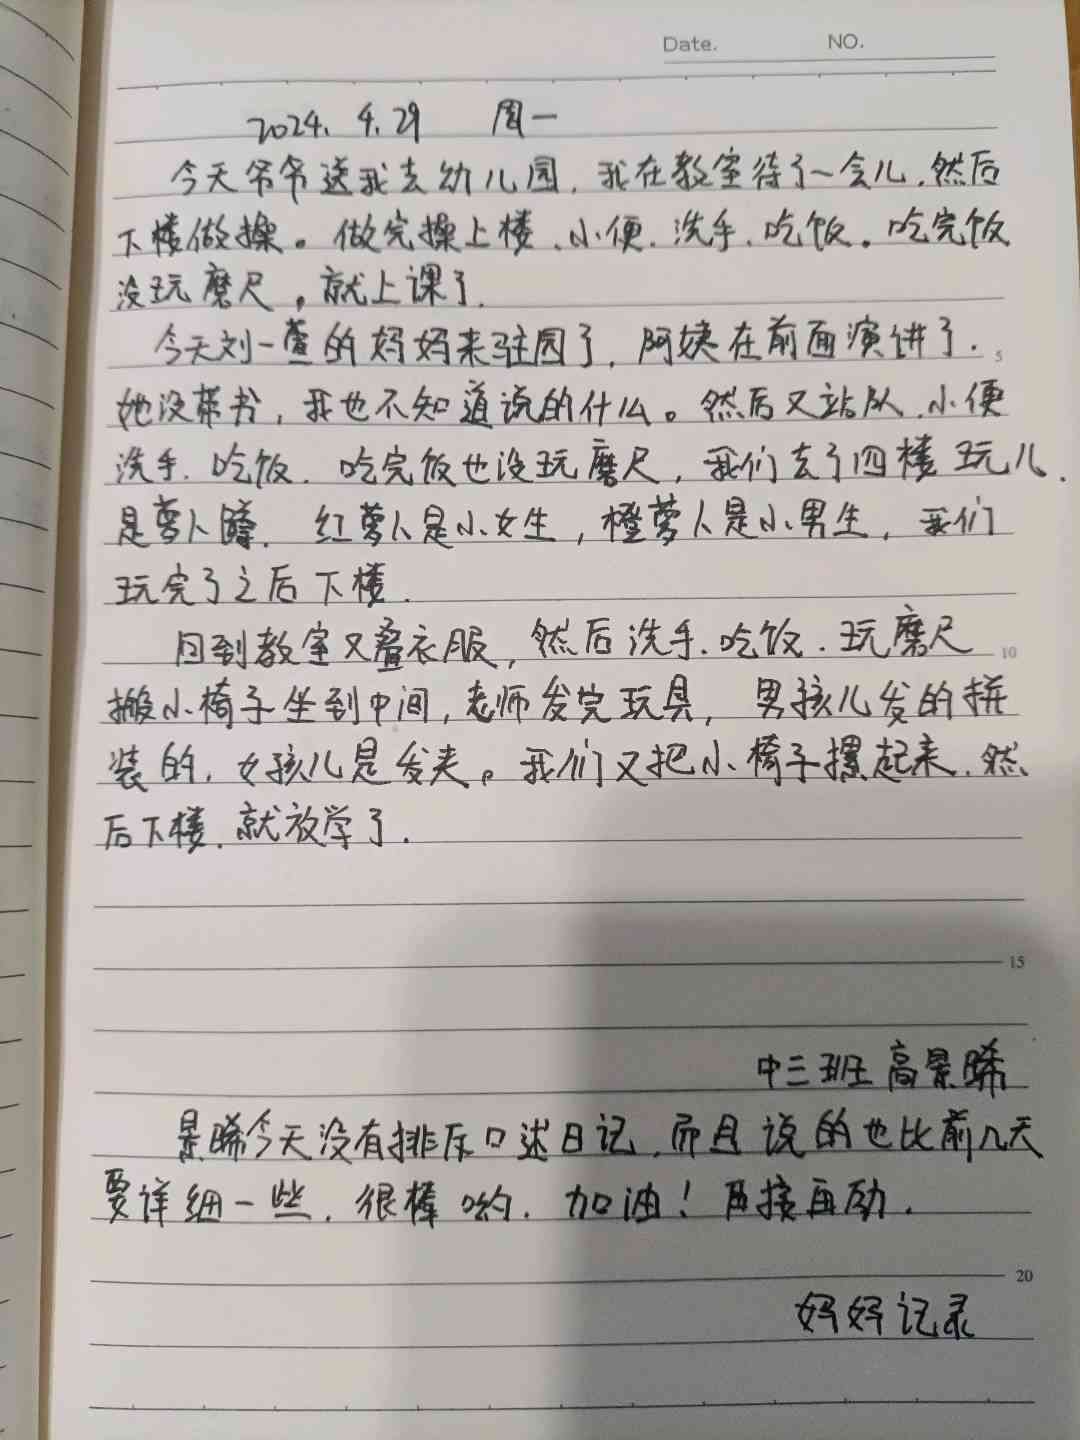 Date. NO.
2024. 4. 29 周一
今天爷爷送我去幼儿园，我在教室待了一会儿.然后
下楼做操。做完操上楼、小便、洗手、吃饭。吃完饭
没玩磨尺，就上课了.
今天刘一萱的妈妈来驻园了，阿姨在前面演讲了.
5
她没带书，我也不知道说的什么。然后又站队、小便
洗手、吃饭. 吃完饭也没玩磨尺，我们去了四楼玩儿.
是萝卜蹲. 红萝卜是小女生，橙萝卜是小男生，我们
玩完了之后下楼.
回到教室又叠衣服，然后洗手.吃饭.玩磨尺
10
搬小椅子坐到中间，老师发完玩具，男孩儿发的拼
装的，女孩儿是发夹。我们又把小椅子摞起来.然
后下楼.就放学了.
15
中三班 高景晞
景晞今天没有排斥口述日记，而且说的也比前几天
要详细一些. 很棒哟. 加油！再接再励.
20
妈妈记录